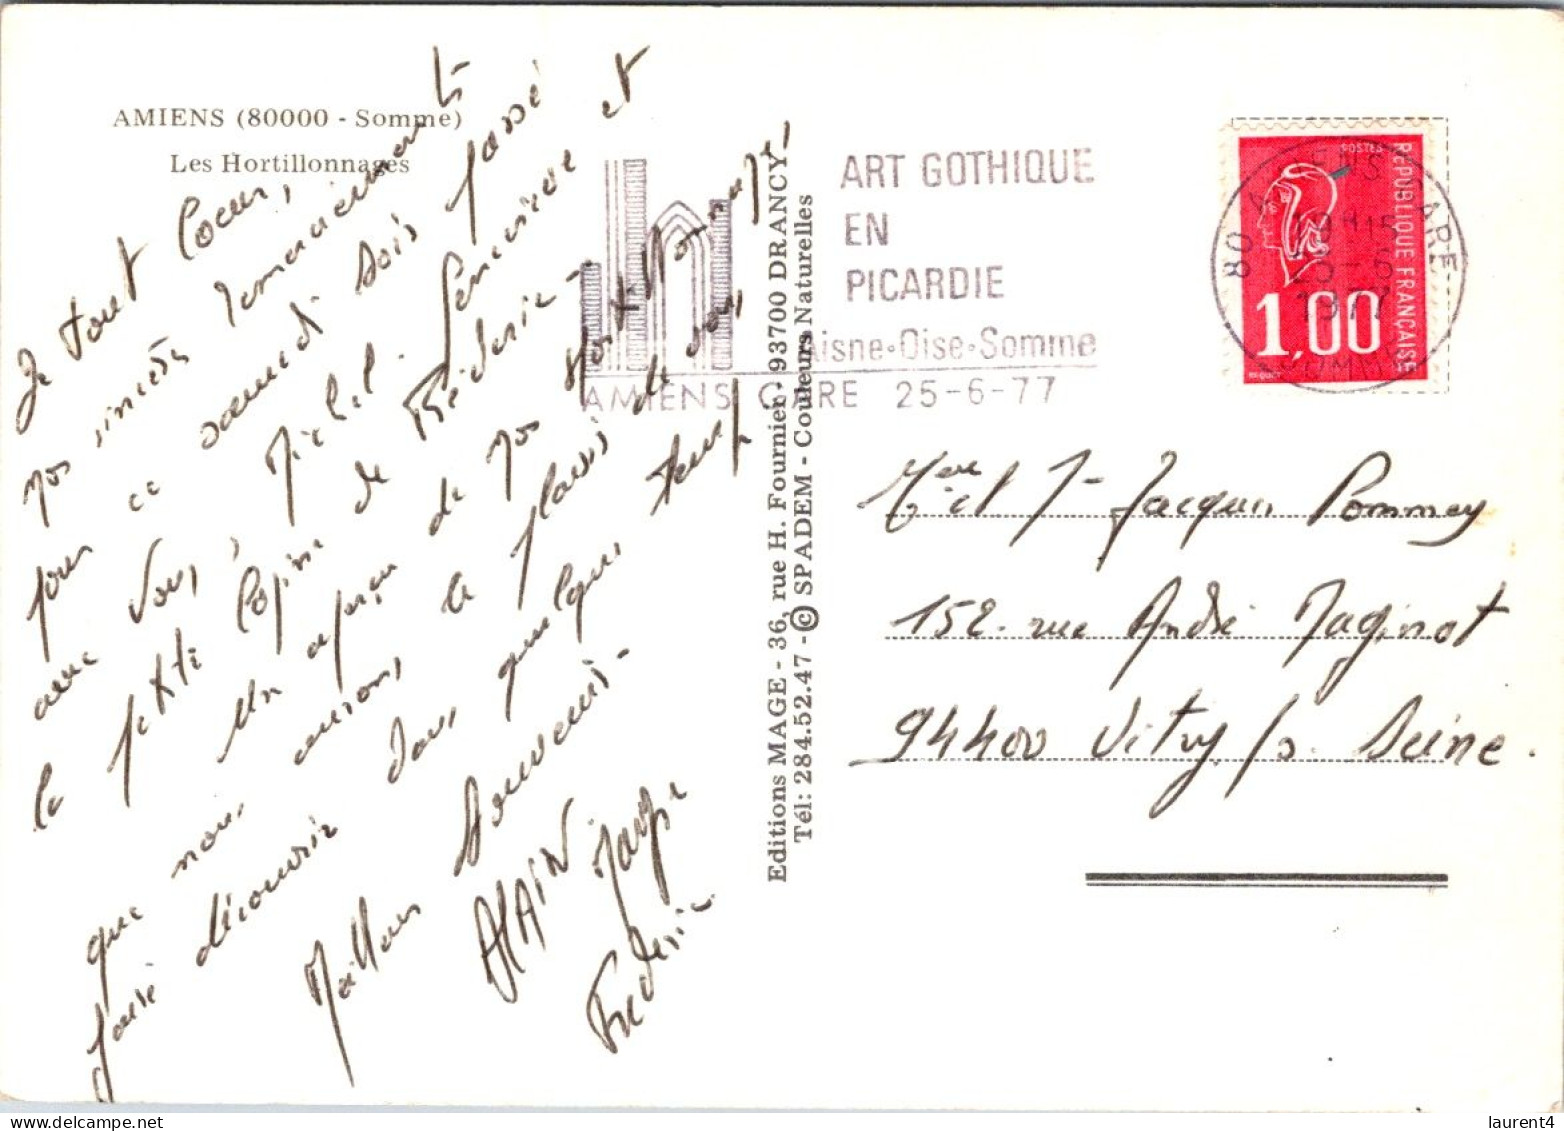 AMIENS (80000 - Somme)
Les Hortillonnages
De tout Coeur,
nos sincères remerciements
pour ce samedi soir passé
avec vous, Michel. Geneviève et
la petite Copine de Fréderic -
Un aperçu de nos Hortillonnages,
que nous aurons le plaisir de vous
faire découvrir dans quelques temps
Meilleurs Souvenirs -
ALAIN
Frederic
Editions MAGE - 36, rue H. Fournier - 93700 DRANCY
Tél: 284.52.47 - © SPADEM - Couleurs Naturelles
ART GOTHIQUE
EN
PICARDIE
Aisne-Oise-Somme
AMIENS GARE 25-6-77
80 AMIENS GARE
19H15
25-6
1977
SOMME
POSTES
REPUBLIQUE FRANÇAISE
1,00
et Jacques Pommey
152 rue André Maginot
94400 Vitry /s. Seine.
laurent4